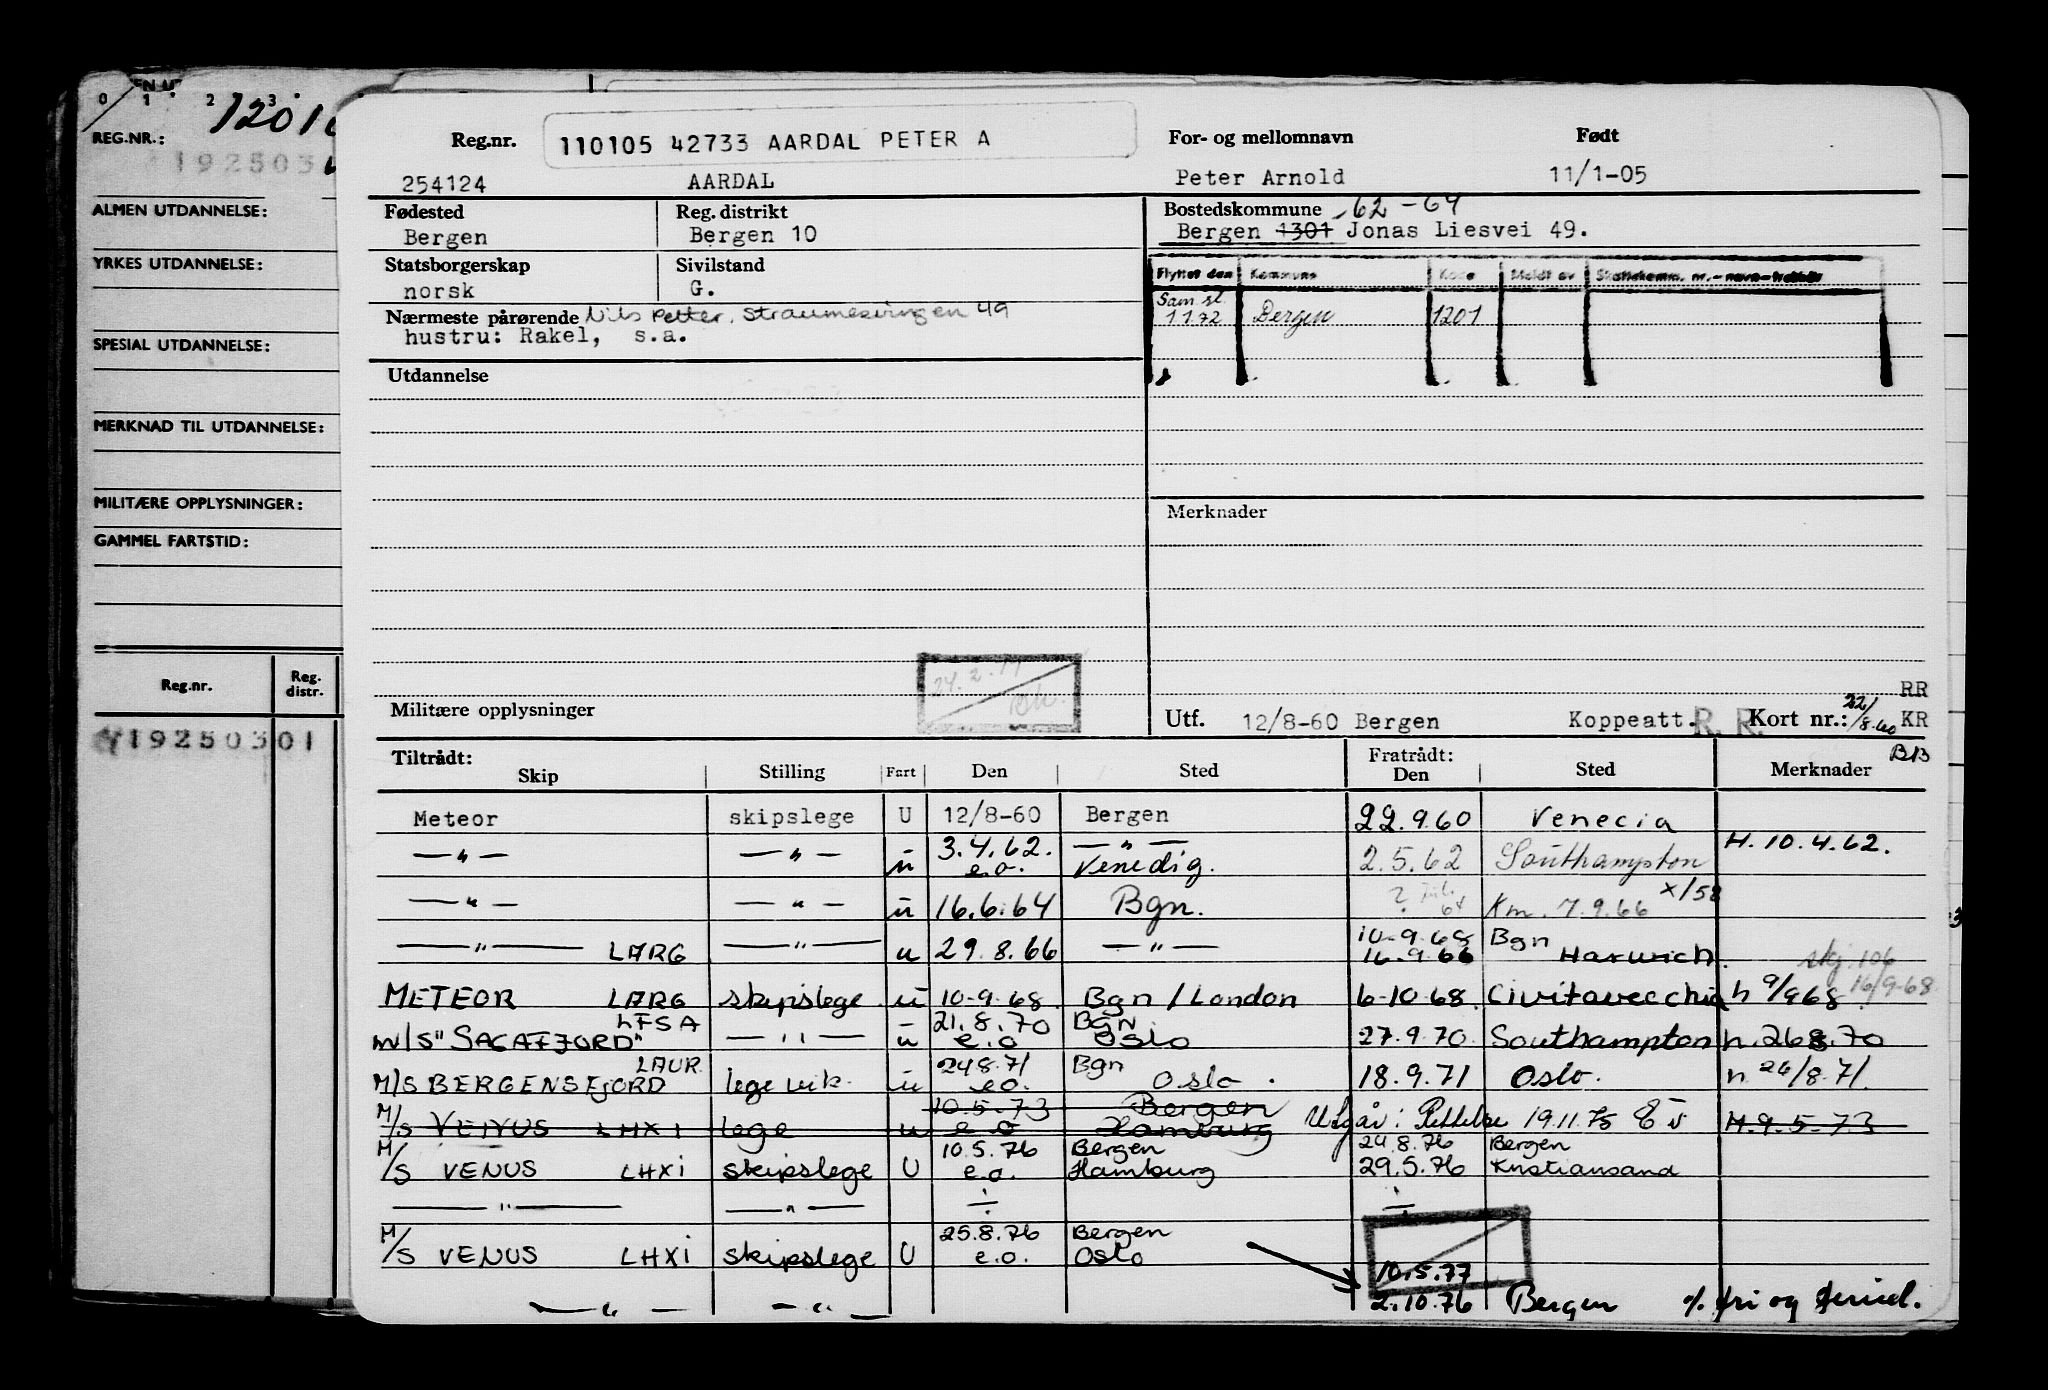 0 1 2 3
REG.NR.:
1925030
ALMEN UTDANNELSE:
YRKES UTDANNELSE:
SPESIAL UTDANNELSE:
MERKNAD TIL UTDANNELSE:
MILITÆRE OPPLYSNINGER:
GAMMEL FARTSTID:
Reg.nr. Reg. distr.
19250301
Reg.nr. 110105 42733 AARDAL PETER A For- og mellomnavn Født
254124 AARDAL Peter Arnold 11/1-05
Fødested Reg. distrikt Bostedskommune 62-64
Bergen Bergen 10 Bergen 1301 Jonas Liesvei 49.
Statsborgerskap Sivilstand Flyttet den Kommune Kode Meldt av
norsk G. Sam sl.
Nærmeste pårørende Nils Petter, Straumesvingen 49 11.72 Bergen 1201
hustru: Rakel, s.a.
Utdannelse
Merknader
24.2.77
RR
Militære opplysninger Utf. 12/8-60 Bergen Koppeatt. R. R. Kort nr.: 22/8.60 KR
B13
Tiltrådt: Fratrådt:
Skip Stilling Fart Den Sted Den Sted Merknader
Meteor skipslege U 12/8-60 Bergen 22.9.60 Venecia
—"— —"— u 3.4.62. —"— 2.5.62 Southampton H. 10.4.62.
e.o. Venedig.
—"— —"— u 16.6.64 Bgn. ? 64 Km. 7.9.66 x/58
—"— LARG —"— u 29.8.66 —"— 10-9.68 Bgn
16.9.66 Harwich.
skj. 106
16/9-68
METEOR LARG skipslege u 10-9.68 Bgn/London 6-10-68. Civitavecchia h 9/968
LFSA 21.8.70 Bgn
M/S "SAGAFJORD" —"— u e.o Oslo 27.9.70. Southampton h.268.70
LAUR. 248.71 Bgn
M/S BERGENSFJORD lege vik. u e.o. Oslo. 18.9.71 Oslo. h 24/8.71.
10.5.73 Bergen
M/S VENUS LHXI lege u e.o Hamburg Utgår i Rettelse 19.11.75 H.9.5.73
10.5.76 Bergen 24.8.76 Bergen
M/S VENUS LHXI skipslege U e.o. Hamburg 29.5.76 Kristiansand
—"— —"— ÷ ÷
25.8.76 Bergen
M/S VENUS LHXI skipslege U e.o. Oslo
10.5.77
—"— —"— 2.10.76 Bergen o/ fri og feried.